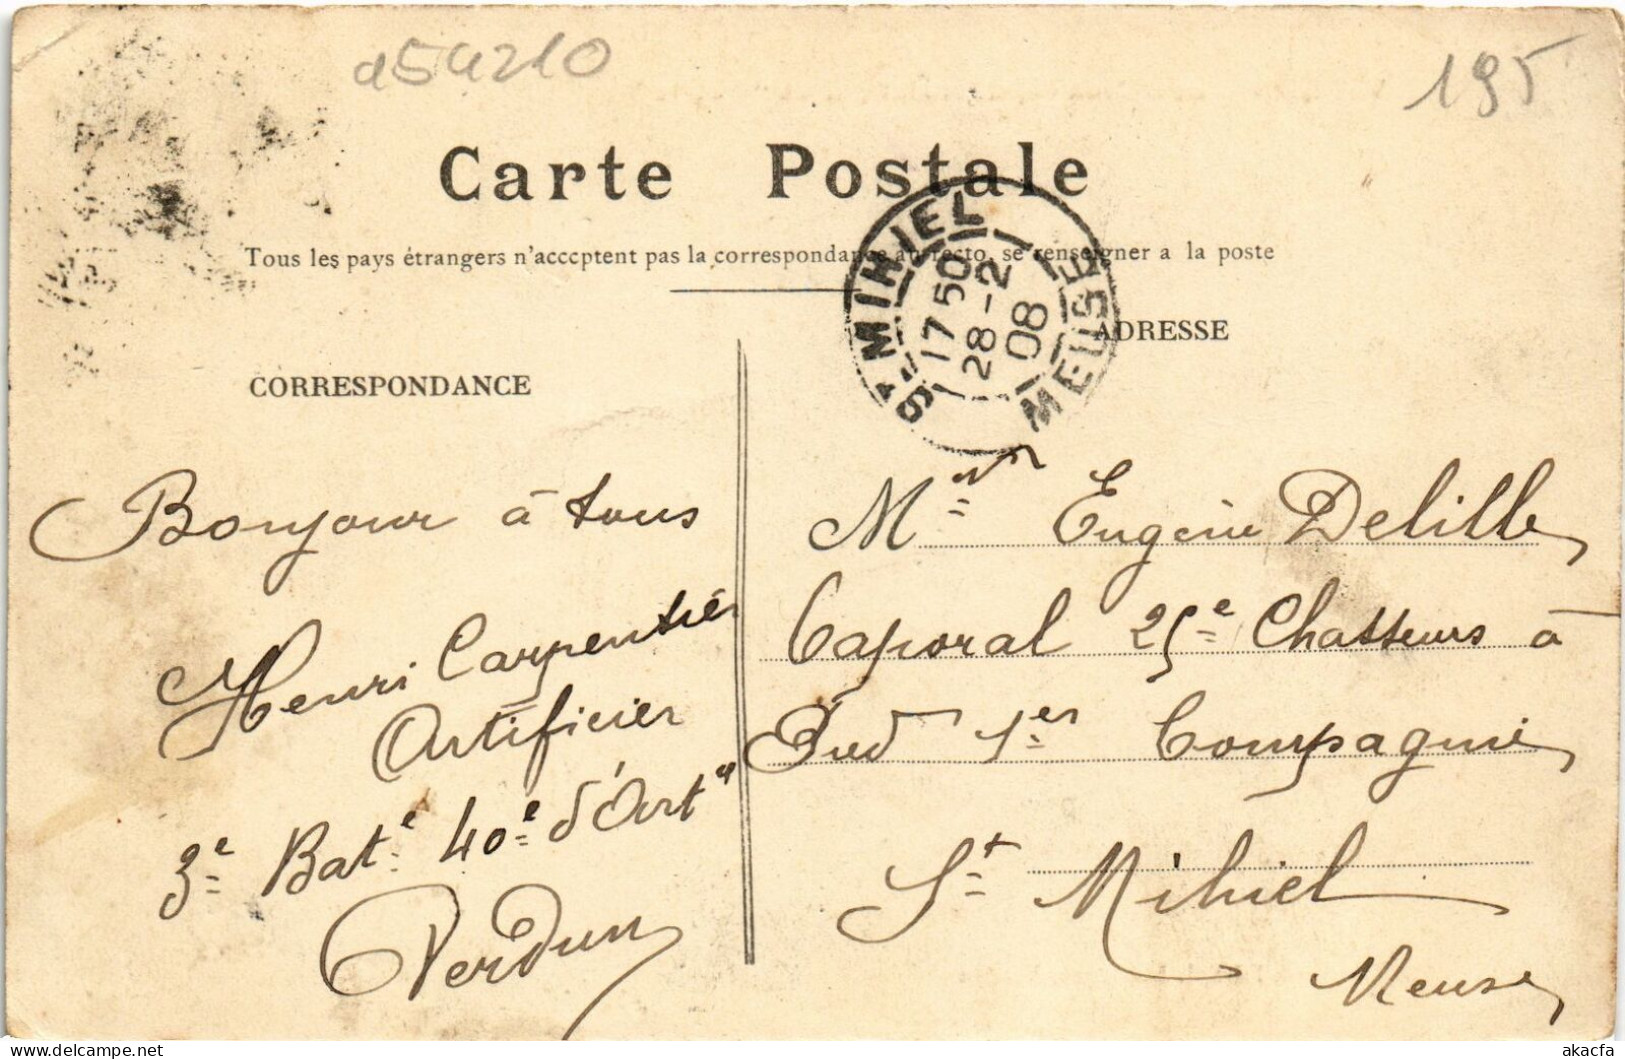 a54210
195
Carte Postale
Tous les pays étrangers n'acccptent pas la correspondance au recto, se renseigner a la poste
ST-MIHIEL
17 50
28-2
08
MEUSE
ADRESSE
CORRESPONDANCE
Bonjour à tous
Henri Carpentier
Artificier
3e Bate 40e d'Art
Verdun
Mr Eugène Delille
Caporal 25e Chasseurs à
Pied 1er Compagnie
St Mihiel
Meuse
akacfa